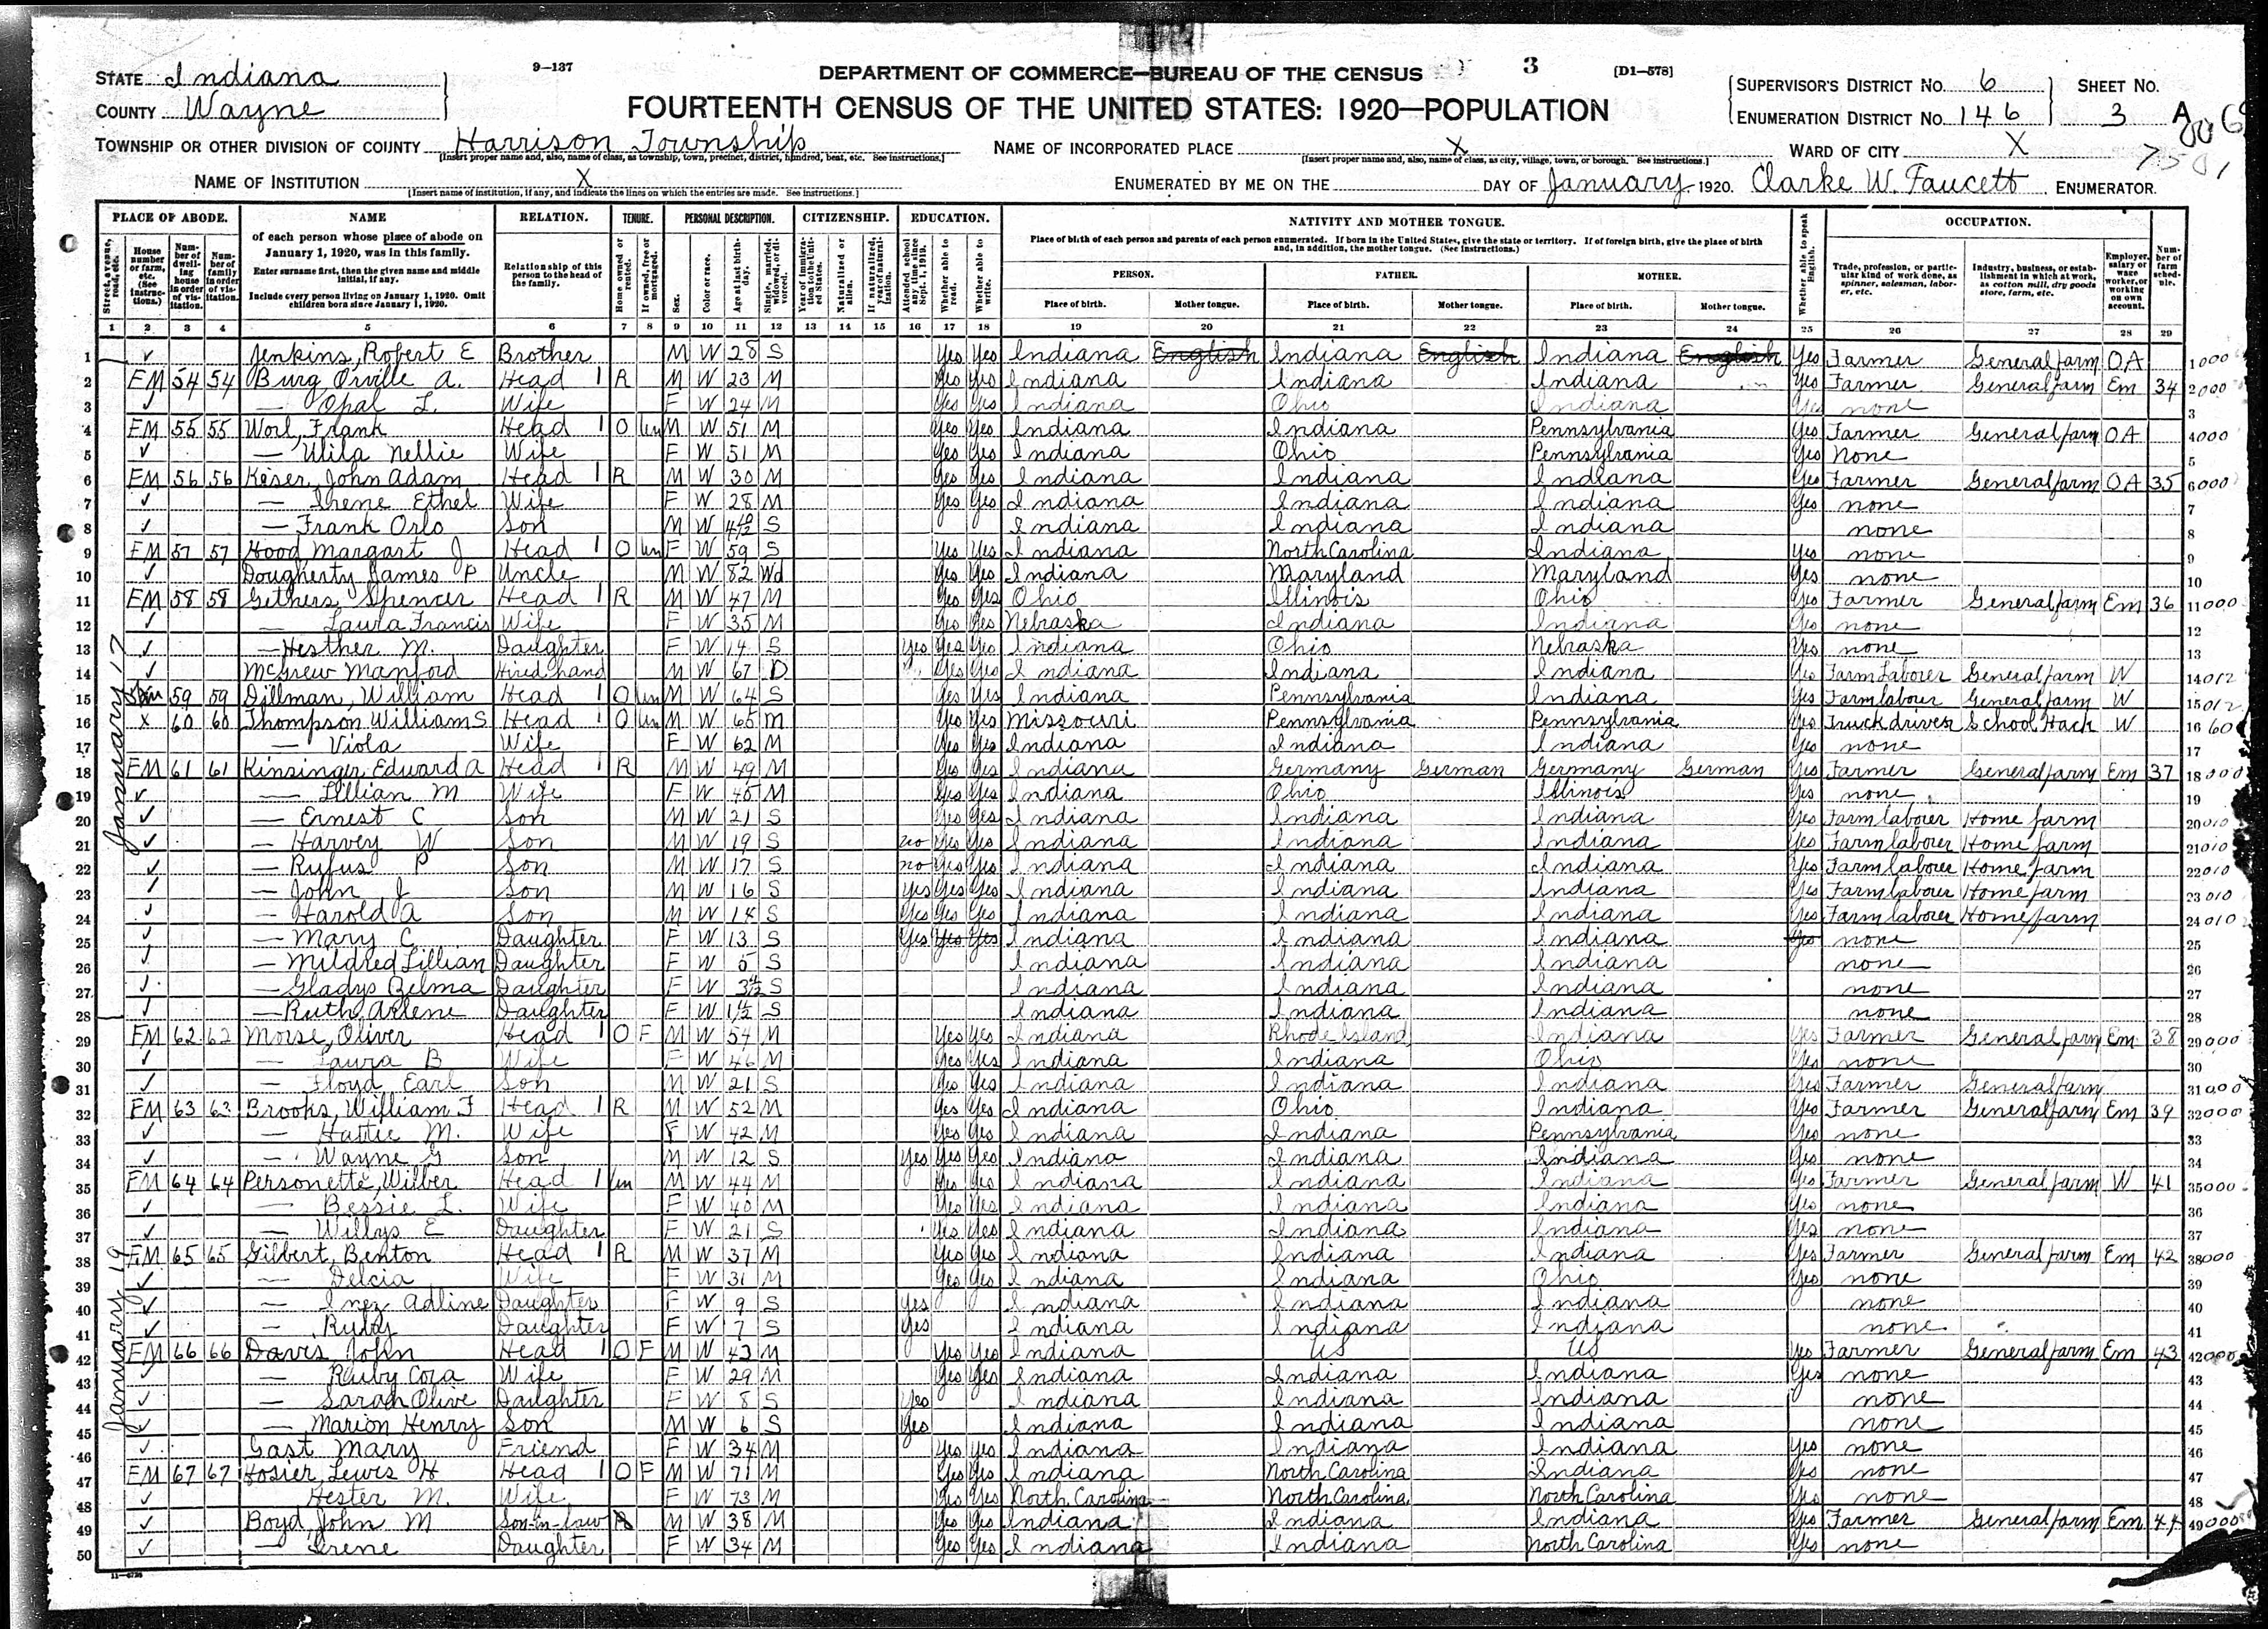 9—137
DEPARTMENT OF COMMERCE—BUREAU OF THE CENSUS
3
[D1—578]
STATE Indiana
COUNTY Wayne
FOURTEENTH CENSUS OF THE UNITED STATES: 1920—POPULATION
SUPERVISOR'S DISTRICT No. 6
SHEET No.
ENUMERATION DISTRICT No. 146
3 A
TOWNSHIP OR OTHER DIVISION OF COUNTY Harrison Township
[Insert proper name and, also, name of class, as township, town, precinct, district, hundred, beat, etc. See instructions.]
NAME OF INCORPORATED PLACE X
[Insert proper name and, also, name of class, as city, village, town, or borough. See instructions.]
WARD OF CITY X
NAME OF INSTITUTION X
[Insert name of institution, if any, and indicate the lines on which the entries are made. See instructions.]
ENUMERATED BY ME ON THE DAY OF January 1920. Clarke W. Faucett ENUMERATOR.
PLACE OF ABODE. NAME RELATION. TENURE. PERSONAL DESCRIPTION. CITIZENSHIP. EDUCATION. NATIVITY AND MOTHER TONGUE. OCCUPATION.
of each person whose place of abode on January 1, 1920, was in this family.
Enter surname first, then the given name and middle initial, if any.
Include every person living on January 1, 1920. Omit children born since January 1, 1920.
Relationship of this person to the head of the family.
Place of birth of each person and parents of each person enumerated. If born in the United States, give the state or territory. If of foreign birth, give the place of birth and, in addition, the mother tongue. (See instructions.)
PERSON. FATHER. MOTHER.
Place of birth. Mother tongue. Place of birth. Mother tongue. Place of birth. Mother tongue.
1 2 3 4 5 6 7 8 9 10 11 12 13 14 15 16 17 18 19 20 21 22 23 24 25 26 27 28 29
1 Jenkins, Robert E Brother M W 28 S Yes Yes Indiana English Indiana English Indiana English Yes Farmer General farm OA
2 FM 54 54 Burg Orville A. Head 1 R M W 23 M Yes Yes Indiana Indiana Indiana Yes Farmer General farm Em 34
3 — Opal L. Wife F W 24 M Yes Yes Indiana Ohio Indiana Yes none
4 FM 55 55 Worl, Frank Head 1 O Un M W 51 M Yes Yes Indiana Indiana Pennsylvania Yes Farmer General farm OA
5 — Nellie Wife F W 51 M Yes Yes Indiana Ohio Pennsylvania Yes None
6 FM 56 56 Keser, John Adam Head 1 R M W 30 M Yes Yes Indiana Indiana Indiana Yes Farmer General farm OA 35
7 — Irene Ethel Wife F W 28 M Yes Yes Indiana Indiana Indiana Yes none
8 — Frank Orlo Son M W S Indiana Indiana Indiana none
9 FM 57 57 Hood Margart J Head 1 O Un F W 59 S Yes Yes Indiana North Carolina Indiana Yes none
10 Dougherty James P Uncle M W 82 Wd Yes Yes Indiana Maryland Maryland Yes none
11 FM 58 58 Gethers Spencer Head 1 R M W 47 M Yes Yes Ohio Illinois Ohio Yes Farmer General farm Em 36
12 — Laura Francis Wife F W 35 M Yes Yes Nebraska Indiana Indiana Yes none
13 — Hesther M. Daughter F W 14 S Yes Yes Yes Indiana Ohio Nebraska Yes none
14 McGrew Manford Hired hand M W 67 D Yes Yes Indiana Indiana Indiana Yes Farm Laborer General farm W
15 59 59 Dillman, William Head 1 O Un M W 64 S Yes Yes Indiana Pennsylvania Indiana Yes Farm labour General farm W
16 X 60 60 Thompson William S Head 1 O Un M W 65 M Yes Yes Missouri Pennsylvania Pennsylvania Yes Truck driver School Hack W
17 — Viola Wife F W 62 M Yes Yes Indiana Indiana Indiana Yes none
18 FM 61 61 Kinsinger Edward A Head 1 R M W 49 M Yes Yes Indiana Germany German Germany German Yes Farmer General farm Em 37
19 — Lillian M Wife F W 45 M Yes Yes Indiana Ohio Illinois Yes none
20 — Ernest C Son M W 21 S Yes Yes Indiana Indiana Indiana Yes Farm laborer Home farm
21 — Harvey W Son M W 19 S no Yes Yes Indiana Indiana Indiana Yes Farm laborer Home farm
22 — Rufus P Son M W 17 S no Yes Yes Indiana Indiana Indiana Yes Farm laborer Home farm
23 — John J Son M W 16 S Yes Yes Yes Indiana Indiana Indiana Yes Farm laborer Home farm
24 — Harold A Son M W 14 S Yes Yes Yes Indiana Indiana Indiana Yes Farm laborer Home farm
25 — Mary C Daughter F W 13 S Yes Yes Yes Indiana Indiana Indiana Yes none
26 — Mildred Lillian Daughter F W 5 S Indiana Indiana Indiana none
27 — Gladys Belma Daughter F W S Indiana Indiana Indiana none
28 — Ruth Arlene Daughter F W S Indiana Indiana Indiana none
29 FM 62 62 Morse, Oliver Head 1 O F M W 54 M Yes Yes Indiana Rhode Island Indiana Yes Farmer General farm Em 38
30 — Laura B Wife F W 46 M Yes Yes Indiana Indiana Ohio Yes none
31 — Floyd Earl Son M W 21 S Yes Yes Indiana Indiana Indiana Yes Farmer General farm
32 FM 63 63 Brooks, William F Head 1 R M W 52 M Yes Yes Indiana Ohio Indiana Yes Farmer General farm Em 39
33 — Hattie M. Wife F W 42 M Yes Yes Indiana Indiana Pennsylvania Yes none
34 — Wayne G Son M W 12 S Yes Yes Yes Indiana Indiana Indiana Yes none
35 FM 64 64 Personette, Wilber Head 1 Un M W 44 M Yes Yes Indiana Indiana Indiana Yes Farmer General farm W 41
36 — Bessie L. Wife F W 40 M Yes Yes Indiana Indiana Indiana Yes none
37 — Willys E Daughter F W 21 S Yes Yes Indiana Indiana Indiana Yes none
38 FM 65 65 Gilbert, Benton Head 1 R M W 37 M Yes Yes Indiana Indiana Indiana Yes Farmer General farm Em 42
39 — Delcia Wife F W 31 M Yes Yes Indiana Indiana Ohio Yes none
40 — Inez Adline Daughter F W 9 S Yes Indiana Indiana Indiana none
41 — Ruby Daughter F W 7 S Yes Indiana Indiana Indiana none
42 FM 66 66 Davis John Head 1 O F M W 43 M Yes Yes Indiana US US Yes Farmer General farm Em 43
43 — Ruby Cora Wife F W 29 M Yes Yes Indiana Indiana Indiana Yes none
44 — Sarah Olive Daughter F W 8 S Yes Indiana Indiana Indiana none
45 — Marion Henry Son M W 6 S Yes Indiana Indiana Indiana none
46 Gast Mary Friend F W 34 M Yes Yes Indiana Indiana Indiana Yes none
47 FM 67 67 Hosier, Lewis H Head 1 O F M W 71 M Yes Yes Indiana North Carolina Indiana Yes none
48 Hester M. Wife F W 73 M Yes Yes North Carolina North Carolina North Carolina Yes none
49 Boyd, John M Son-in-law M W 38 M Yes Yes Indiana Indiana Indiana Yes Farmer General farm Em 44
50 — Irene Daughter F W 34 M Yes Yes Indiana Indiana North Carolina Yes none
January 17
January 19